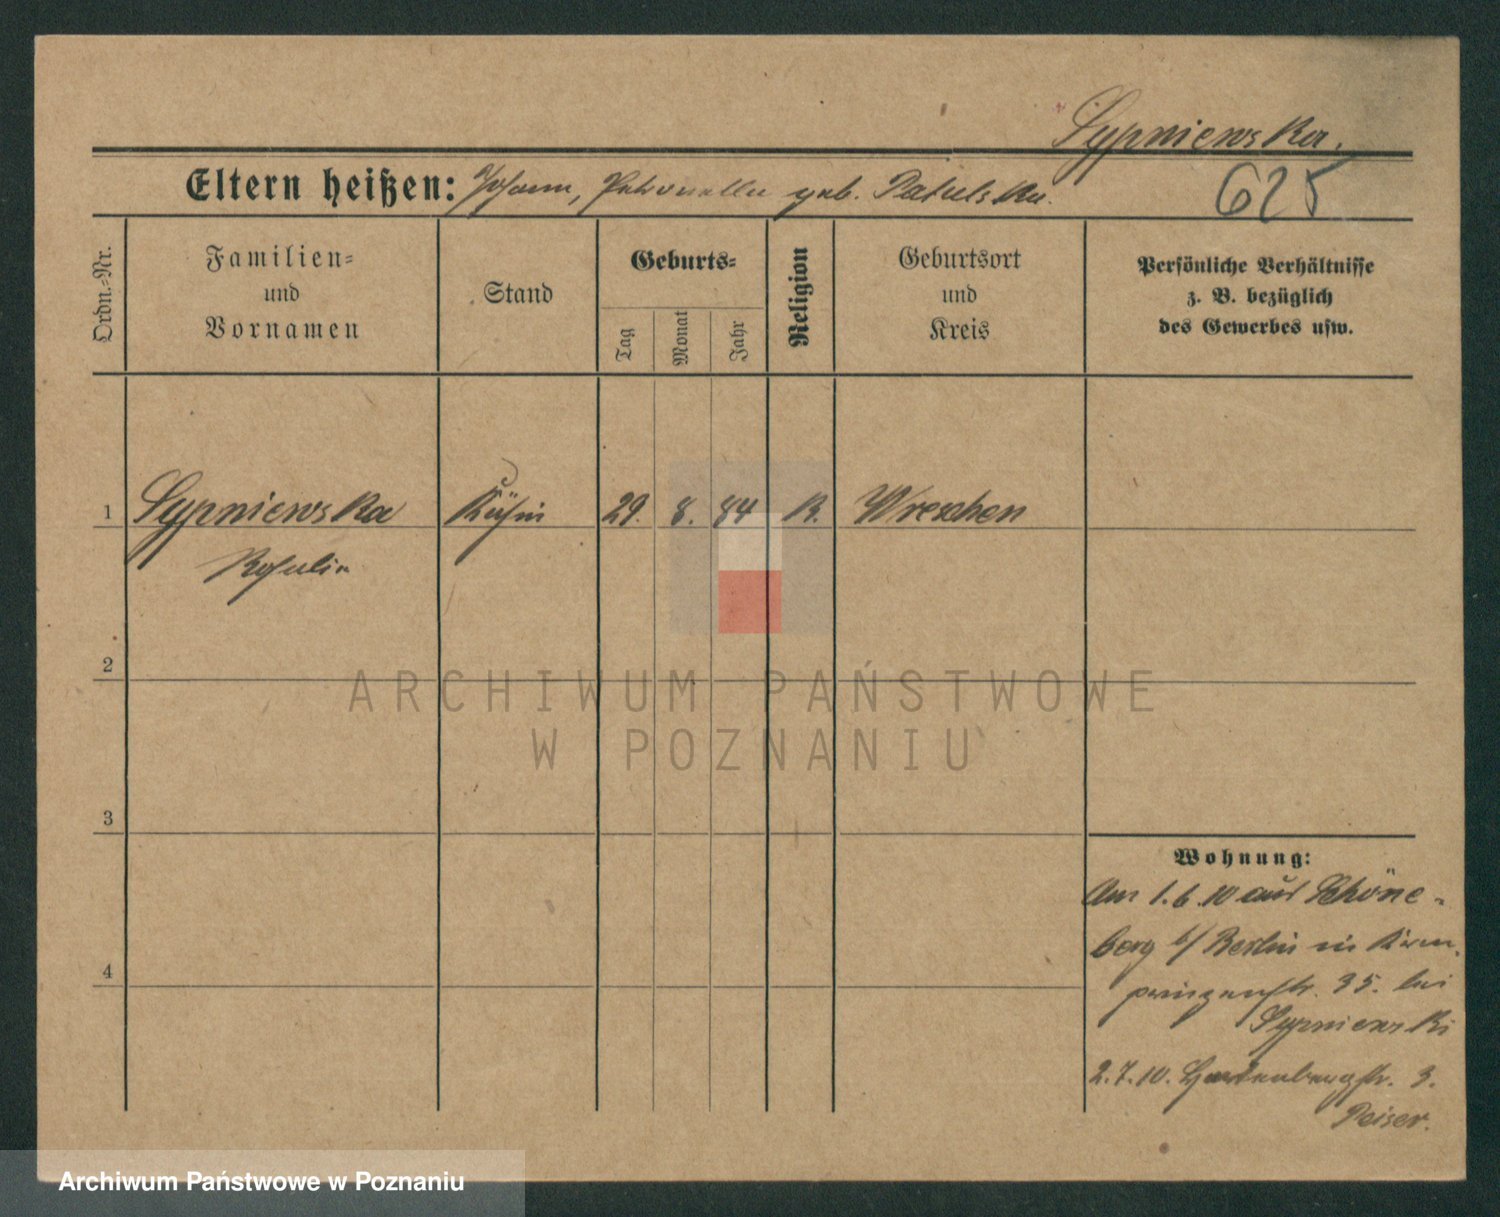 Sypniewska.
Eltern heißen: Johann, Petronella geb.
625
Ordn.-Nr.
Familien-
und
Vornamen
Stand
Geburts-
Tag
Monat
Jahr
Religion
Geburtsort
und
Kreis
Persönliche Verhältnisse
z. B. bezüglich
des Gewerbes usw.
1 Sypniewska Köchin 29. 8. 84 K. Wreschen
Rosalie
2
ARCHIWUM PAŃSTWOWE
W POZNANIU
3
Wohnung:
Am 1.6.10 aus Schöne-
berg b/ Berlin in Kron-
prinzenstr. 35. bei
Sypniewski
4
2.7.10. Hardenbergstr. 3.
Peiser.
Archiwum Państwowe w Poznaniu